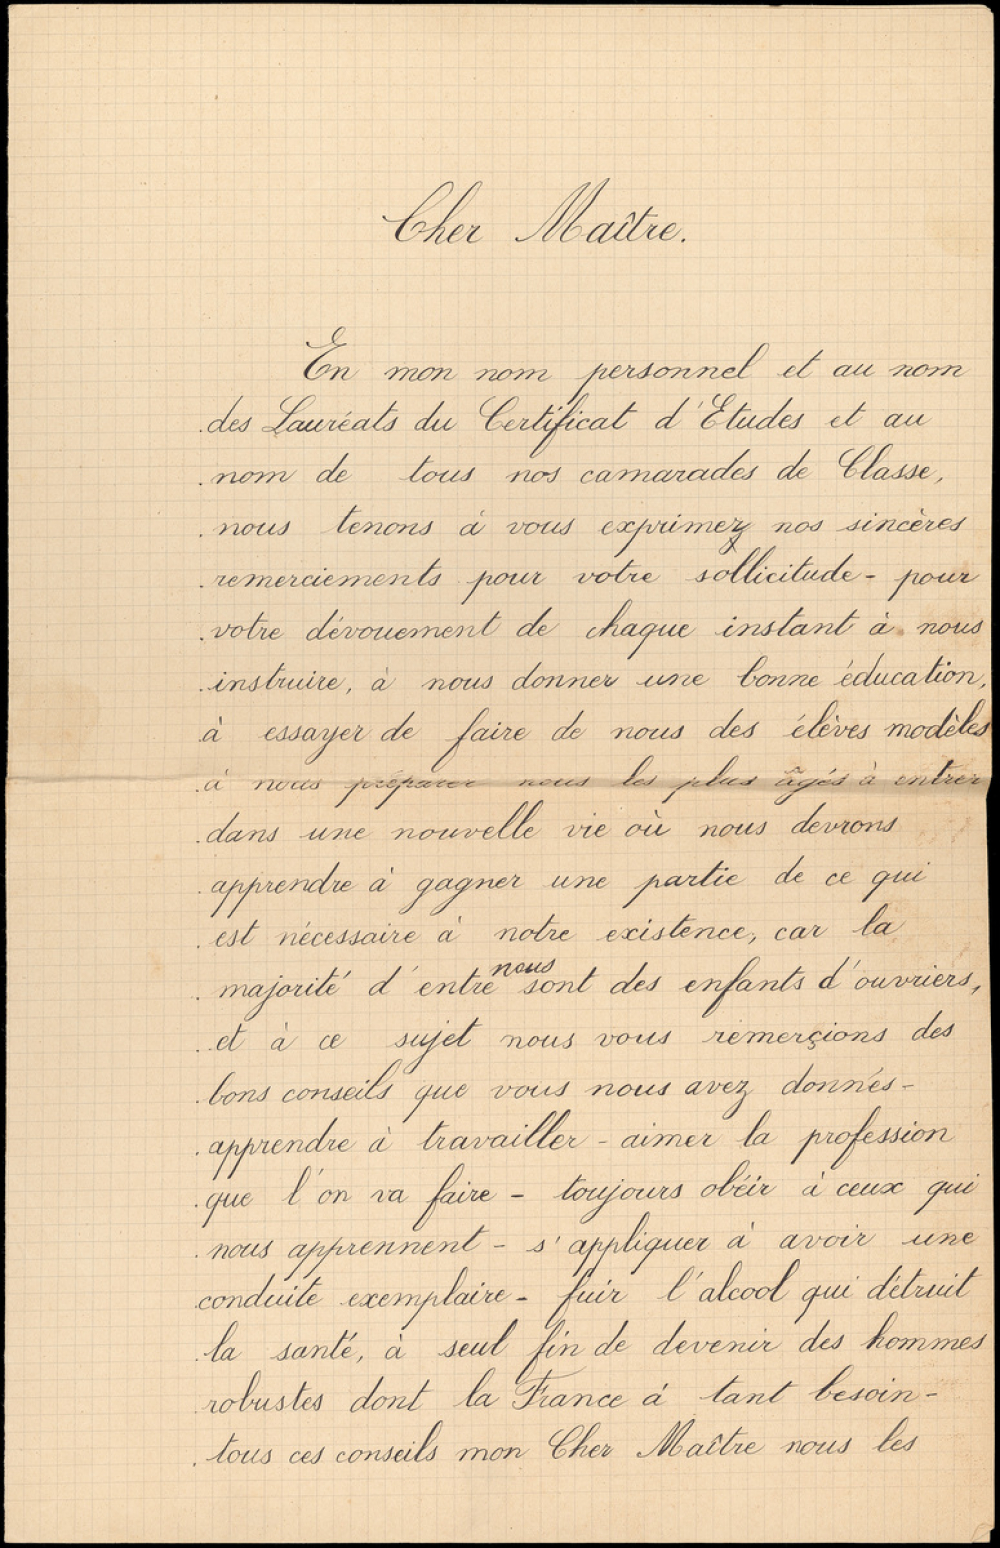 Cher Maître.
En mon nom personnel et au nom
des Lauréats du Certificat d'Etudes et au
nom de tous nos camarades de Classe,
nous tenons à vous exprimez nos sincères
remerciements pour votre sollicitude - pour
votre dévouement de chaque instant à nous
instruire, à nous donner une bonne éducation,
à essayer de faire de nous des élèves modèles
à nous préparer nous les plus âgés à entrer
dans une nouvelle vie où nous devrons
apprendre à gagner une partie de ce qui
est nécessaire à notre existence, car la
majorité d'entre nous sont des enfants d'ouvriers,
et à ce sujet nous vous remerçions des
bons conseils que vous nous avez donnés -
apprendre à travailler - aimer la profession
que l'on va faire - toujours obéir à ceux qui
nous apprennent - s'appliquer à avoir une
conduite exemplaire - fuir l'alcool qui détruit
la santé, à seul fin de devenir des hommes
robustes dont la France à tant besoin -
tous ces conseils mon Cher Maître nous les